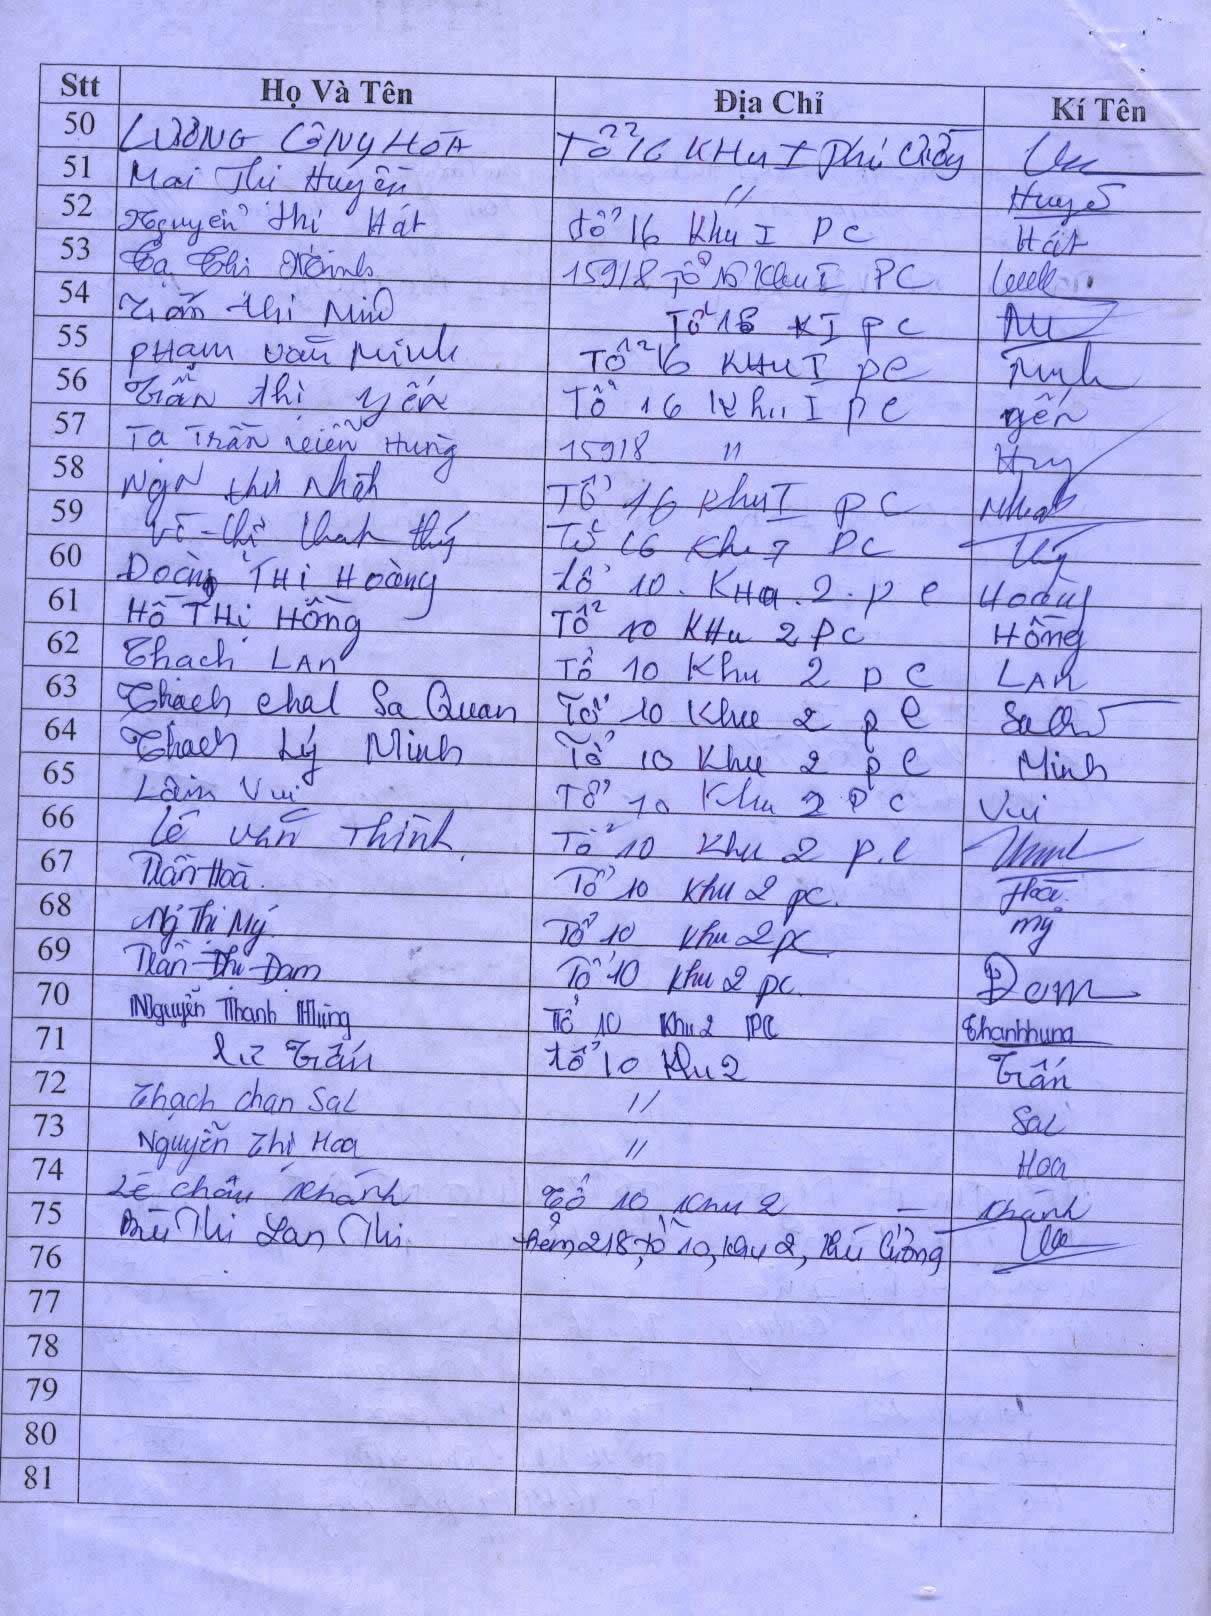 Stt Họ Và Tên Địa Chỉ Kí Tên
50 LƯƠNG CÔNG HÒA Tổ 16 KHu I Phú Cường
51 Mai Thị Huyền " Huyền
52 Nguyễn thị Hát tổ 16 Khu I PC Hát
53 Tạ Thị 159/8 Tổ 16 Khu I PC
54 Trần thị Tổ 16 KI PC
55 PHạm văn Minh Tổ 16 KHu I pc Minh
56 Trần thị yến Tổ 16 Khu I pc yến
57 Tạ Trần Hưng 159/8 "
58 Tổ 16 Khu I PC
59 Võ - thị thanh thúy Tổ 16 Khu I PC
60 Đoàn THị Hoàng tổ 10. KHu. 2. p c Hoàng
61 Hồ THị Hồng Tổ 10 KHu 2 PC Hồng
62 Thạch LAN Tổ 10 Khu 2 p C LAN
63 Thạch chal Sa Quan Tổ 10 Khu 2 p c
64 Thạch Lý Minh Tổ 10 Khu 2 p c Minh
65 Lâm Vui Tổ 10 Khu 2 P C Vui
66 Lê Văn Thình. Tổ 10 Khu 2 p.c
67 Trần Hoà. Tổ 10 Khu 2 pc. Hoà.
68 Thị Mỹ. Tổ 10 Khu 2 pc mỹ
69 Trần Thị Đạm Tổ 10 Khu 2 pc. Đạm
70 Nguyễn Thanh Hùng Tổ 10 Khu 2 PC Thanhhung
71 Lư Trấn tổ 10 Khu 2 Trấn
72 Thạch chan Sal " Sal
73 Nguyễn Thị Hoa " Hoa
74 Lê châu Khánh Tổ 10 Khu 2 Khánh
75 Bùi Thị Lan Thi hẻm 218, tổ 10, Khu 2, Phú Cường
76
77
78
79
80
81